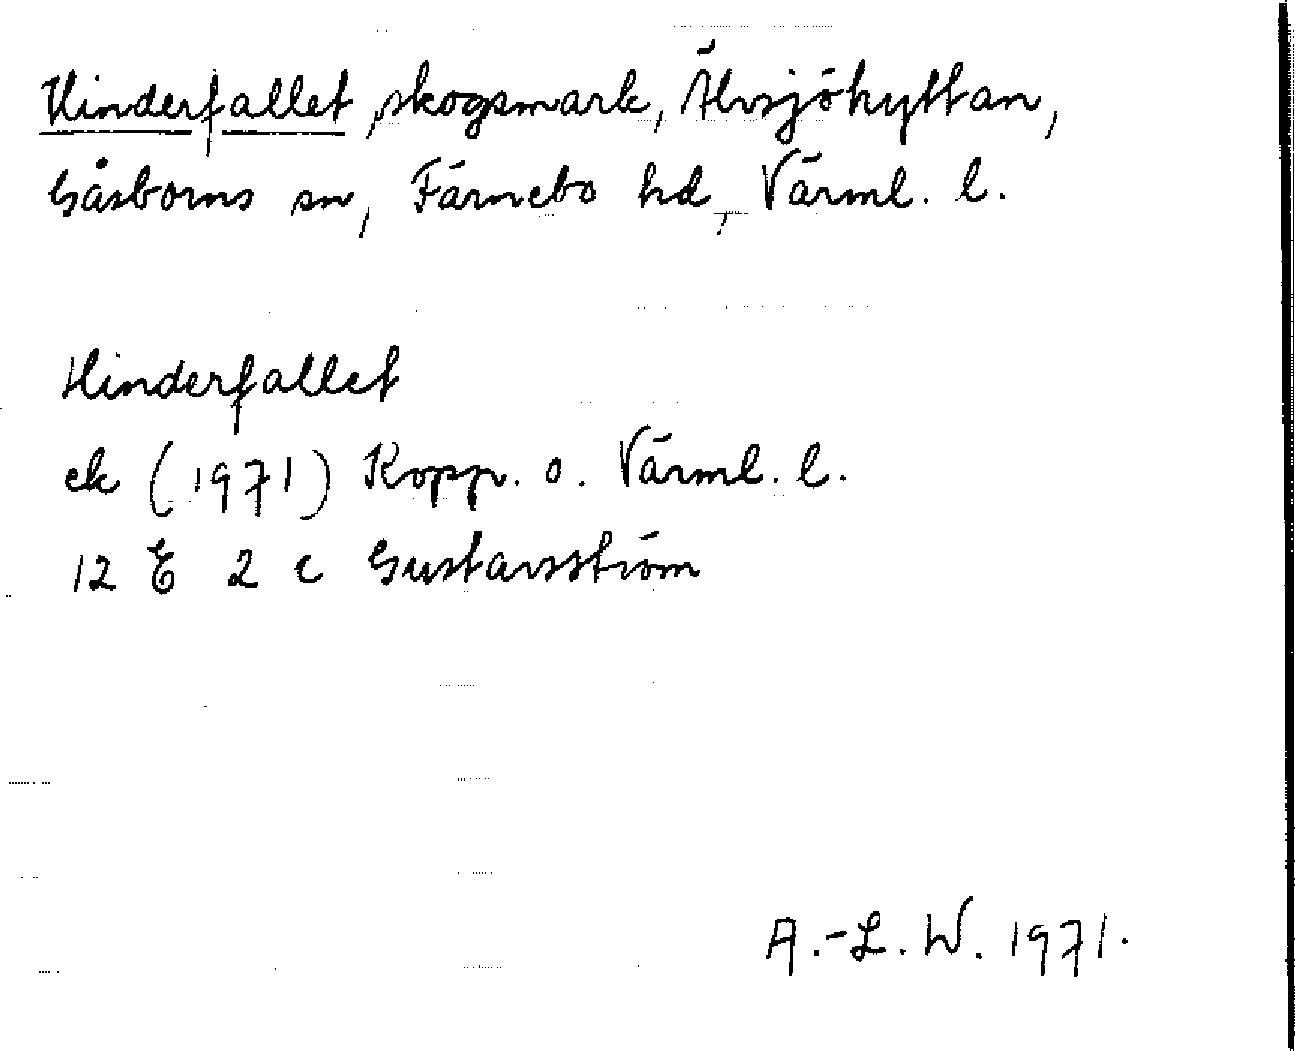 Hinderfallet, skogsmark, Älvsjöhyttan,
Gåsborns sn, Färnebo hd, Värml. l.
Hinderfallet
ek (1971) Kopp. o. Värml. l.
12 E 2 c Gustavsström
A.-L. W. 1971.